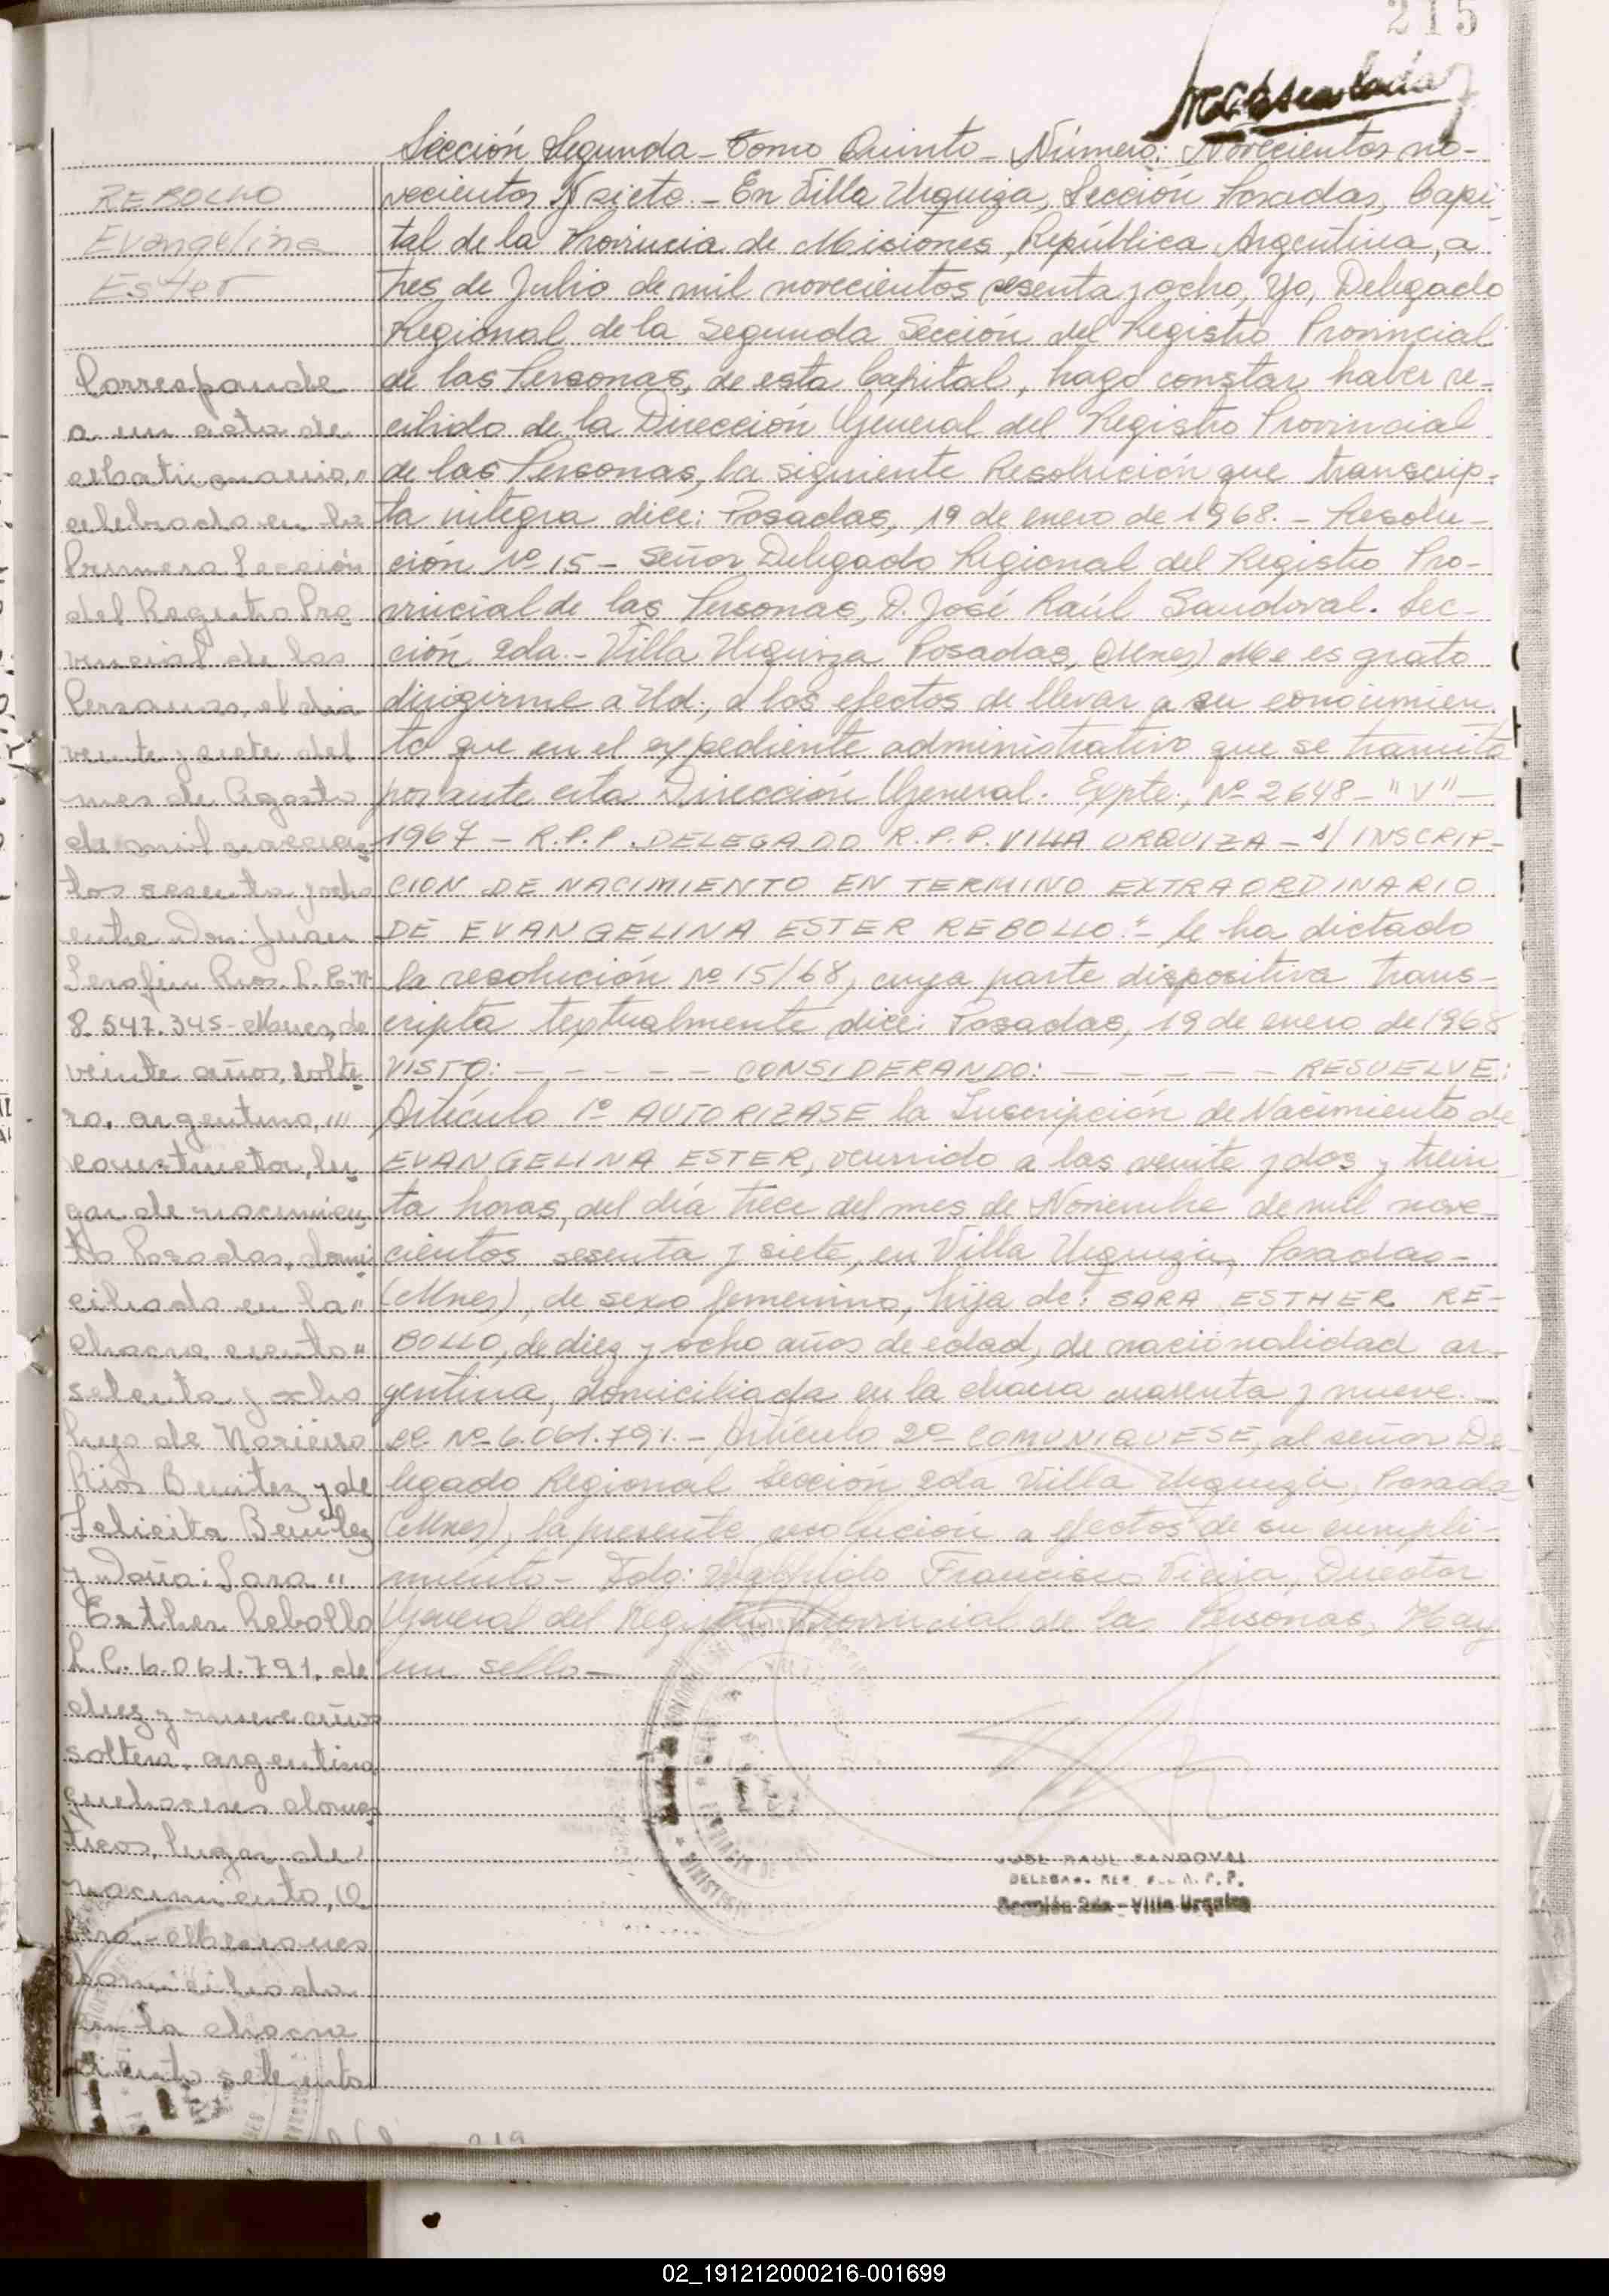 215
Sección Segunda - Tomo Quinto - Número: Novecientos no-
vecientos y siete. - En Villa Urquiza, Sección Posadas, Capi-
tal de la Provincia de Misiones, República Argentina, a
tres de Julio de mil novecientos sesenta y ocho, Yo, Delegado
Regional de la Segunda Sección del Registro Provincial
de las Personas, de esta Capital, hago constar haber re-
cibido de la Dirección General del Registro Provincial
de las Personas, la siguiente Resolución que transcrip-
ta integra dice: Posadas, 19 de enero de 1968. - Resolu-
ción Nº 15 - Señor Delegado Regional del Registro Pro-
vincial de las Personas, D. José Raúl Sandoval. Sec-
ción 2da. - Villa Urquiza Posadas, (Mnes) Me es grato
dirigirme a Ud., a los efectos de llevar a su conocimien
to que en el expediente administrativo que se tramita
por ante esta Dirección General. Expte., Nº 2648 - "V" -
1967 - R.P.P. DELEGADO R.P.P. VILLA URQUIZA - s/ INSCRIP-
CION DE NACIMIENTO EN TERMINO EXTRAORDINARIO
DE EVANGELINA ESTER REBOLLO." - se ha dictado
la resolución Nº 15/68, cuya parte dispositiva trans-
cripta textualmente dice: Posadas, 19 de enero de 1968
VISTO: - - - - - CONSIDERANDO: - - - - - RESUELVE:
Artículo 1º AUTORIZASE la Inscripción de Nacimiento de
EVANGELINA ESTER, ocurrido a las veinte y dos y trein
ta horas, del día trece del mes de Noviembre de mil nove-
cientos sesenta y siete, en Villa Urquiza, Posadas -
(Mnes), de sexo femenino, hija de: SARA ESTHER RE-
BOLLO, de diez y ocho años de edad, de nacionalidad ar-
gentina, domiciliada en la chacra cuarenta y nueve. -
LC. Nº 6.061.791. - Artículo 2º COMUNIQUESE, al señor De-
legado Regional Sección 2da Villa Urquiza, Posadas
(Mnes), la presente resolución a efectos de su cumpli-
miento - Fdo: Francisco Vieira, Director
General del Registro Provincial de las Personas, Hay
un sello -
JOSE RAUL SANDOVAL
DELEGADO REG. R.P.P.
Sección 2da - Villa Urquiza
REBOLLO
Evangelina
Ester
Corresponde
a un acta de
celebrado en la
Primera Sección
del Registro Pro
vincial de las
Personas, el día
veinte y siete del
mes de Agosto
de mil novecien
tos sesenta y ocho
entre Don: Juan
Serafin Rios. L.E. Nº
8.547.345 - Mnes, de
veinte años, solte
ro, argentino, "
constructor, lu
gar de nacimien
to Posadas, domi
ciliado en la "
chacra ciento "
setenta y ocho
hijo de
Ríos Benitez y de
Felicita Benitez
y Doña: Sara "
Esther Rebollo
L.C. 6.061.791, de
diez y nueve años
soltera, argentina
quehaceres domes
ticos, lugar de
nacimiento, O
berá - Misiones
domiciliada
en la chacra
ciento setenta
02_191212000216-001699